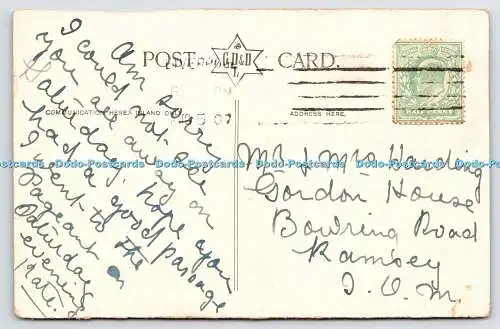 POST CARD.
G.D.&D
L
COMMUNICATION HERE. INLAND ONLY.
ADDRESS HERE.
5 07
HALFPENNY
Am sorry
I could not see
you all away on
Saturday. hope you
had a good passage
I went to the
Pageant on
Saturday
evening
late.
Mr & Mrs Harding
Gordon House
Bowring Road
Ramsey
I. O. M.
Dodo-Postcards Dodo-Postcards Dodo-Postcards Dodo-Postcards Dodo-Postcards Dodo-Postcards